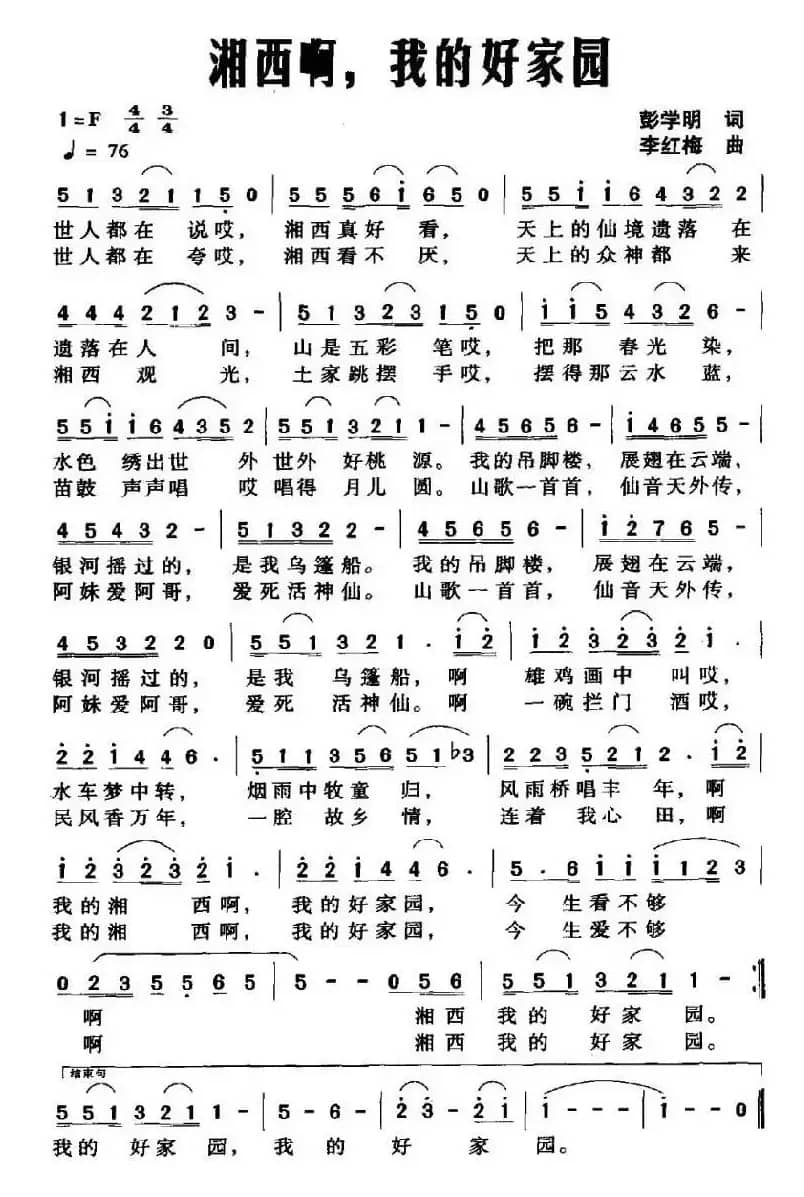 湘西啊，我的好家园
1=F 4/4 3/4
彭学明 词
♩=76
李红梅 曲
5 5 1 3 2 1 1 1 5 0 | 5 5 5 6 i 6 5 0 | 5 5 i i 6 4 3 2 2 |
世人都在 说哎， 湘西真好 看， 天上的仙境遗落 在
世人都在 夸哎， 湘西看不 厌， 天上的众神都 来
4 4 4 2 2 1 2 3 - | 5 5 1 3 2 3 1 5 0 | i i 5 4 3 2 6 - |
遗落在人 间， 山是五彩 笔哎， 把那 春光 染，
湘西 观 光， 土家跳摆 手哎， 摆得那云水 蓝，
5 5 i i 6 4 3 5 2 | 5 5 1 3 2 1 1 - | 4 5 6 5 6 - | i 4 6 5 5 - |
水色 绣出世 外 世外 好桃 源。 我的吊脚楼， 展翅在云端，
苗鼓 声声唱 哎 唱得 月儿 圆。 山歌一首首， 仙音天外传，
4 5 4 3 2 - | 5 1 3 2 2 - | 4 5 6 5 6 - | i 2 7 6 5 - |
银河摇过的， 是我乌篷船。 我的吊脚楼， 展翅在云端，
阿妹爱阿哥， 爱死活神仙。 山歌一首首， 仙音天外传，
4 5 3 2 2 0 | 5 5 1 3 2 1 . i 2 | i 2 3 2 3 2 i .
银河摇过的， 是我 乌篷船， 啊 雄鸡画中 叫哎，
阿妹爱阿哥， 爱死 活神仙。 啊 一碗拦门 酒哎，
2 2 i 4 4 6 . | 5 1 1 3 5 6 5 1 ♭3 | 2 2 3 5 2 1 2 . i 2 |
水车梦中转， 烟雨中牧童 归， 风雨桥唱丰 年，啊
民风香万年， 一腔 故乡 情， 连着 我心 田，啊
i 2 3 2 3 2 i . | 2 2 i 4 4 6 . | 5 . 6 i i i i 2 3 |
我的湘 西啊， 我的好家园， 今 生看不够
我的湘 西啊， 我的好家园， 今 生爱不够
0 2 3 5 5 6 5 | 5 - - 0 5 6 | 5 5 1 3 2 1 1 - :||
啊 湘西 我的 好家 园。
啊 湘西 我的 好家 园。
结束句
5 5 1 3 2 1 1 - | 5 5 i - | 2 3 - 2 i | i - - | i - 0 ||
我的 好家 园， 我 的 好 家 园。